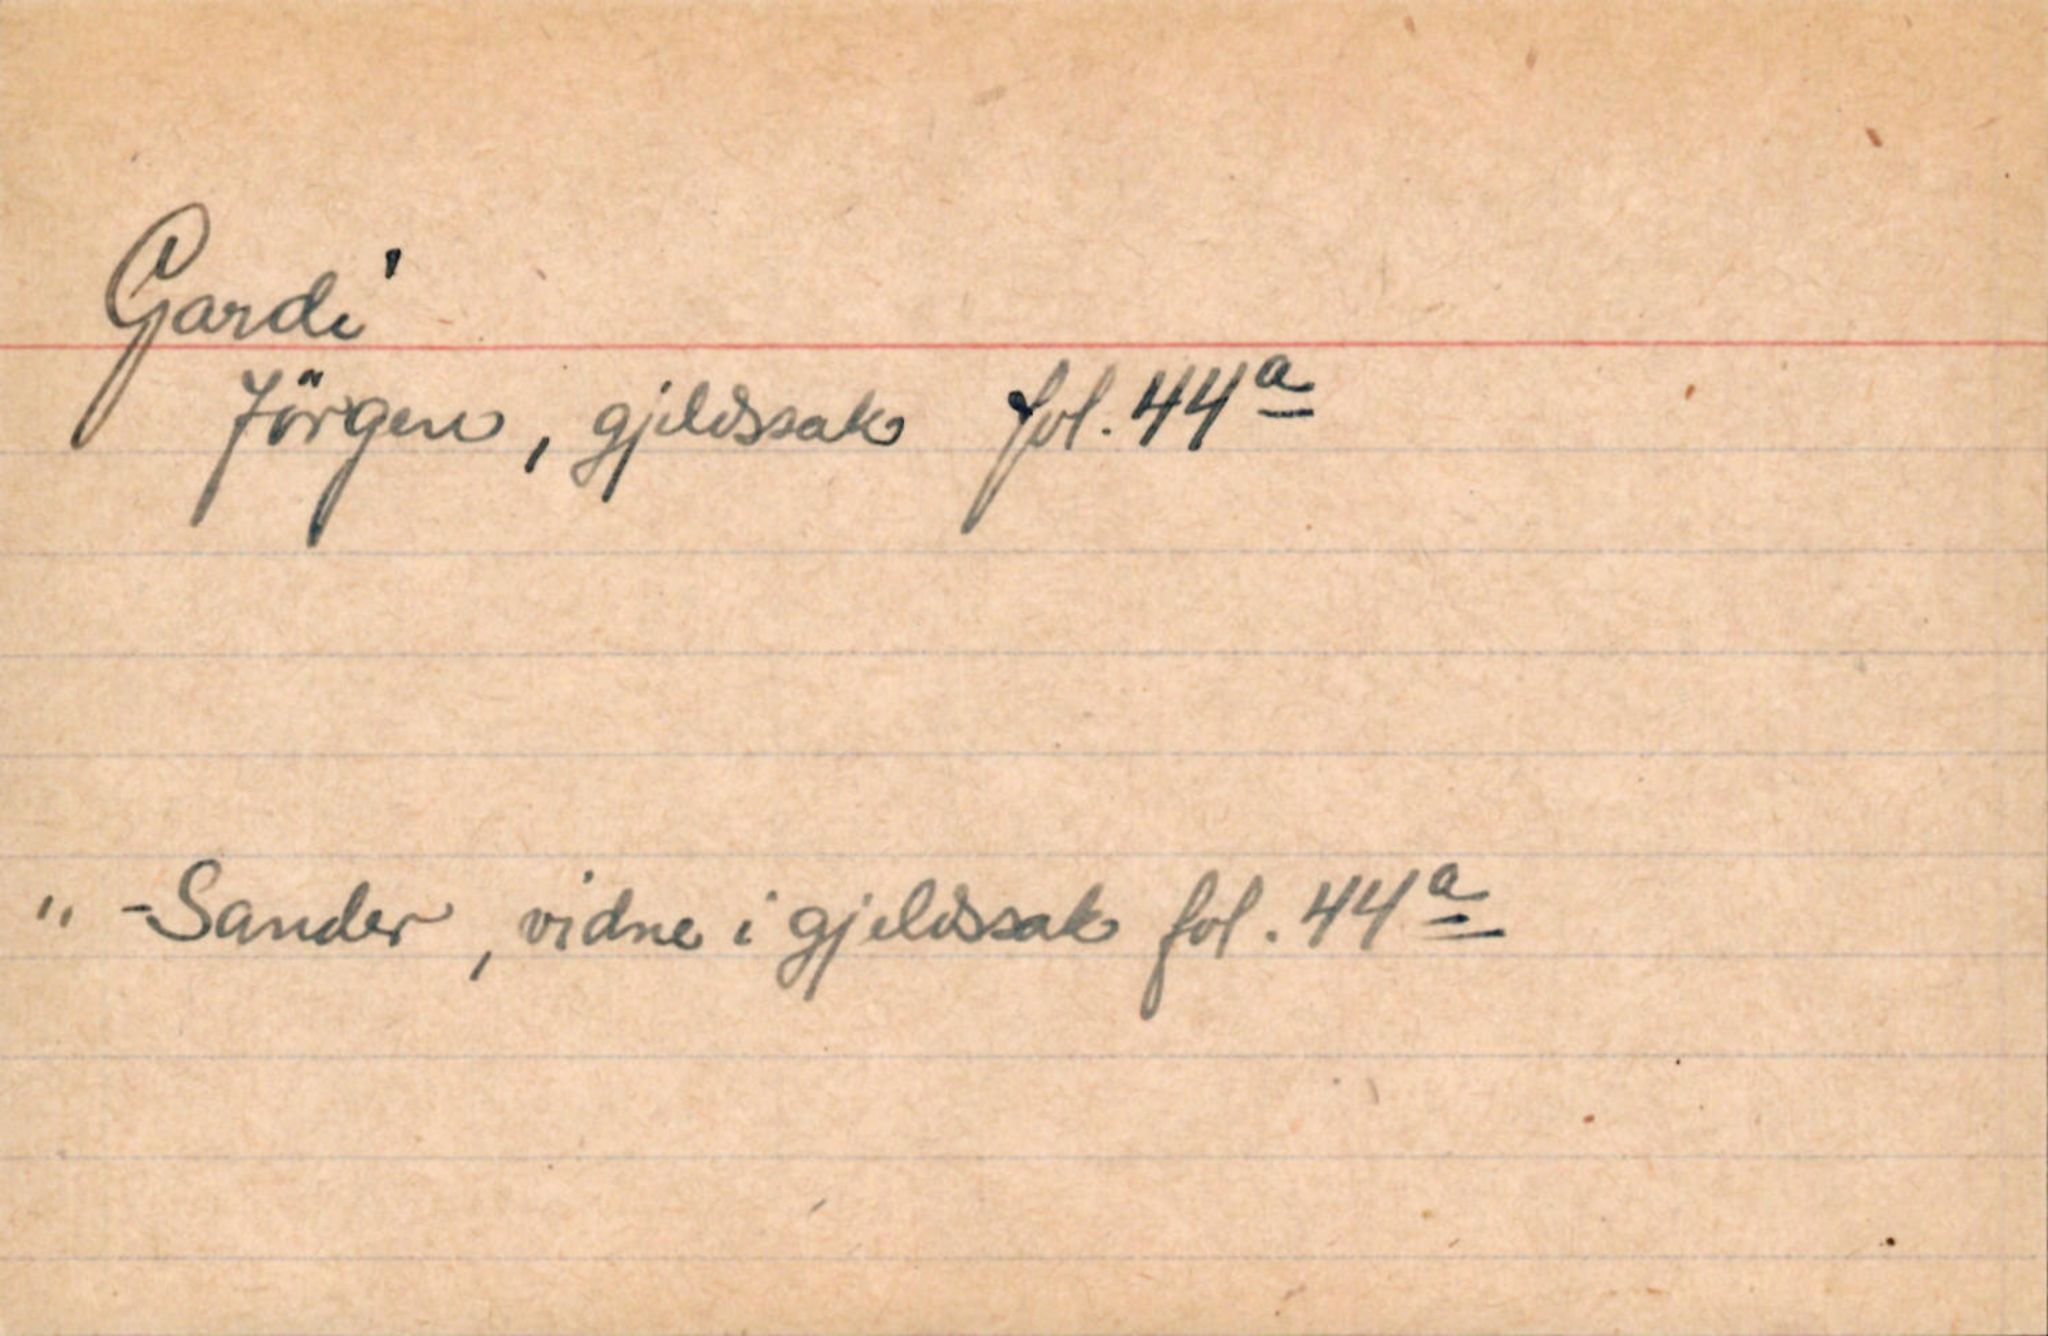 Gardi
Jörgen, gjeldssak fol. 44a
" - Sander, vidne i gjeldssak fol. 44a